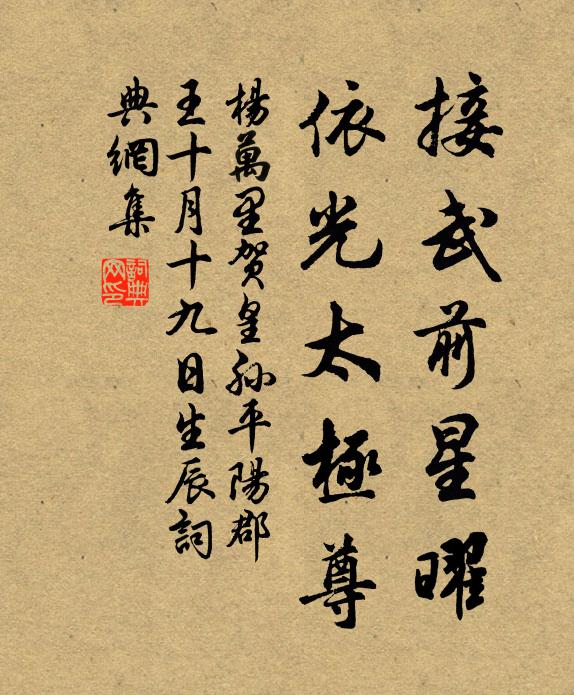 接武前星曜
依光太極尊
楊萬里賀皇孫平陽郡
王十月十九日生辰詞
典網集
詞典網印